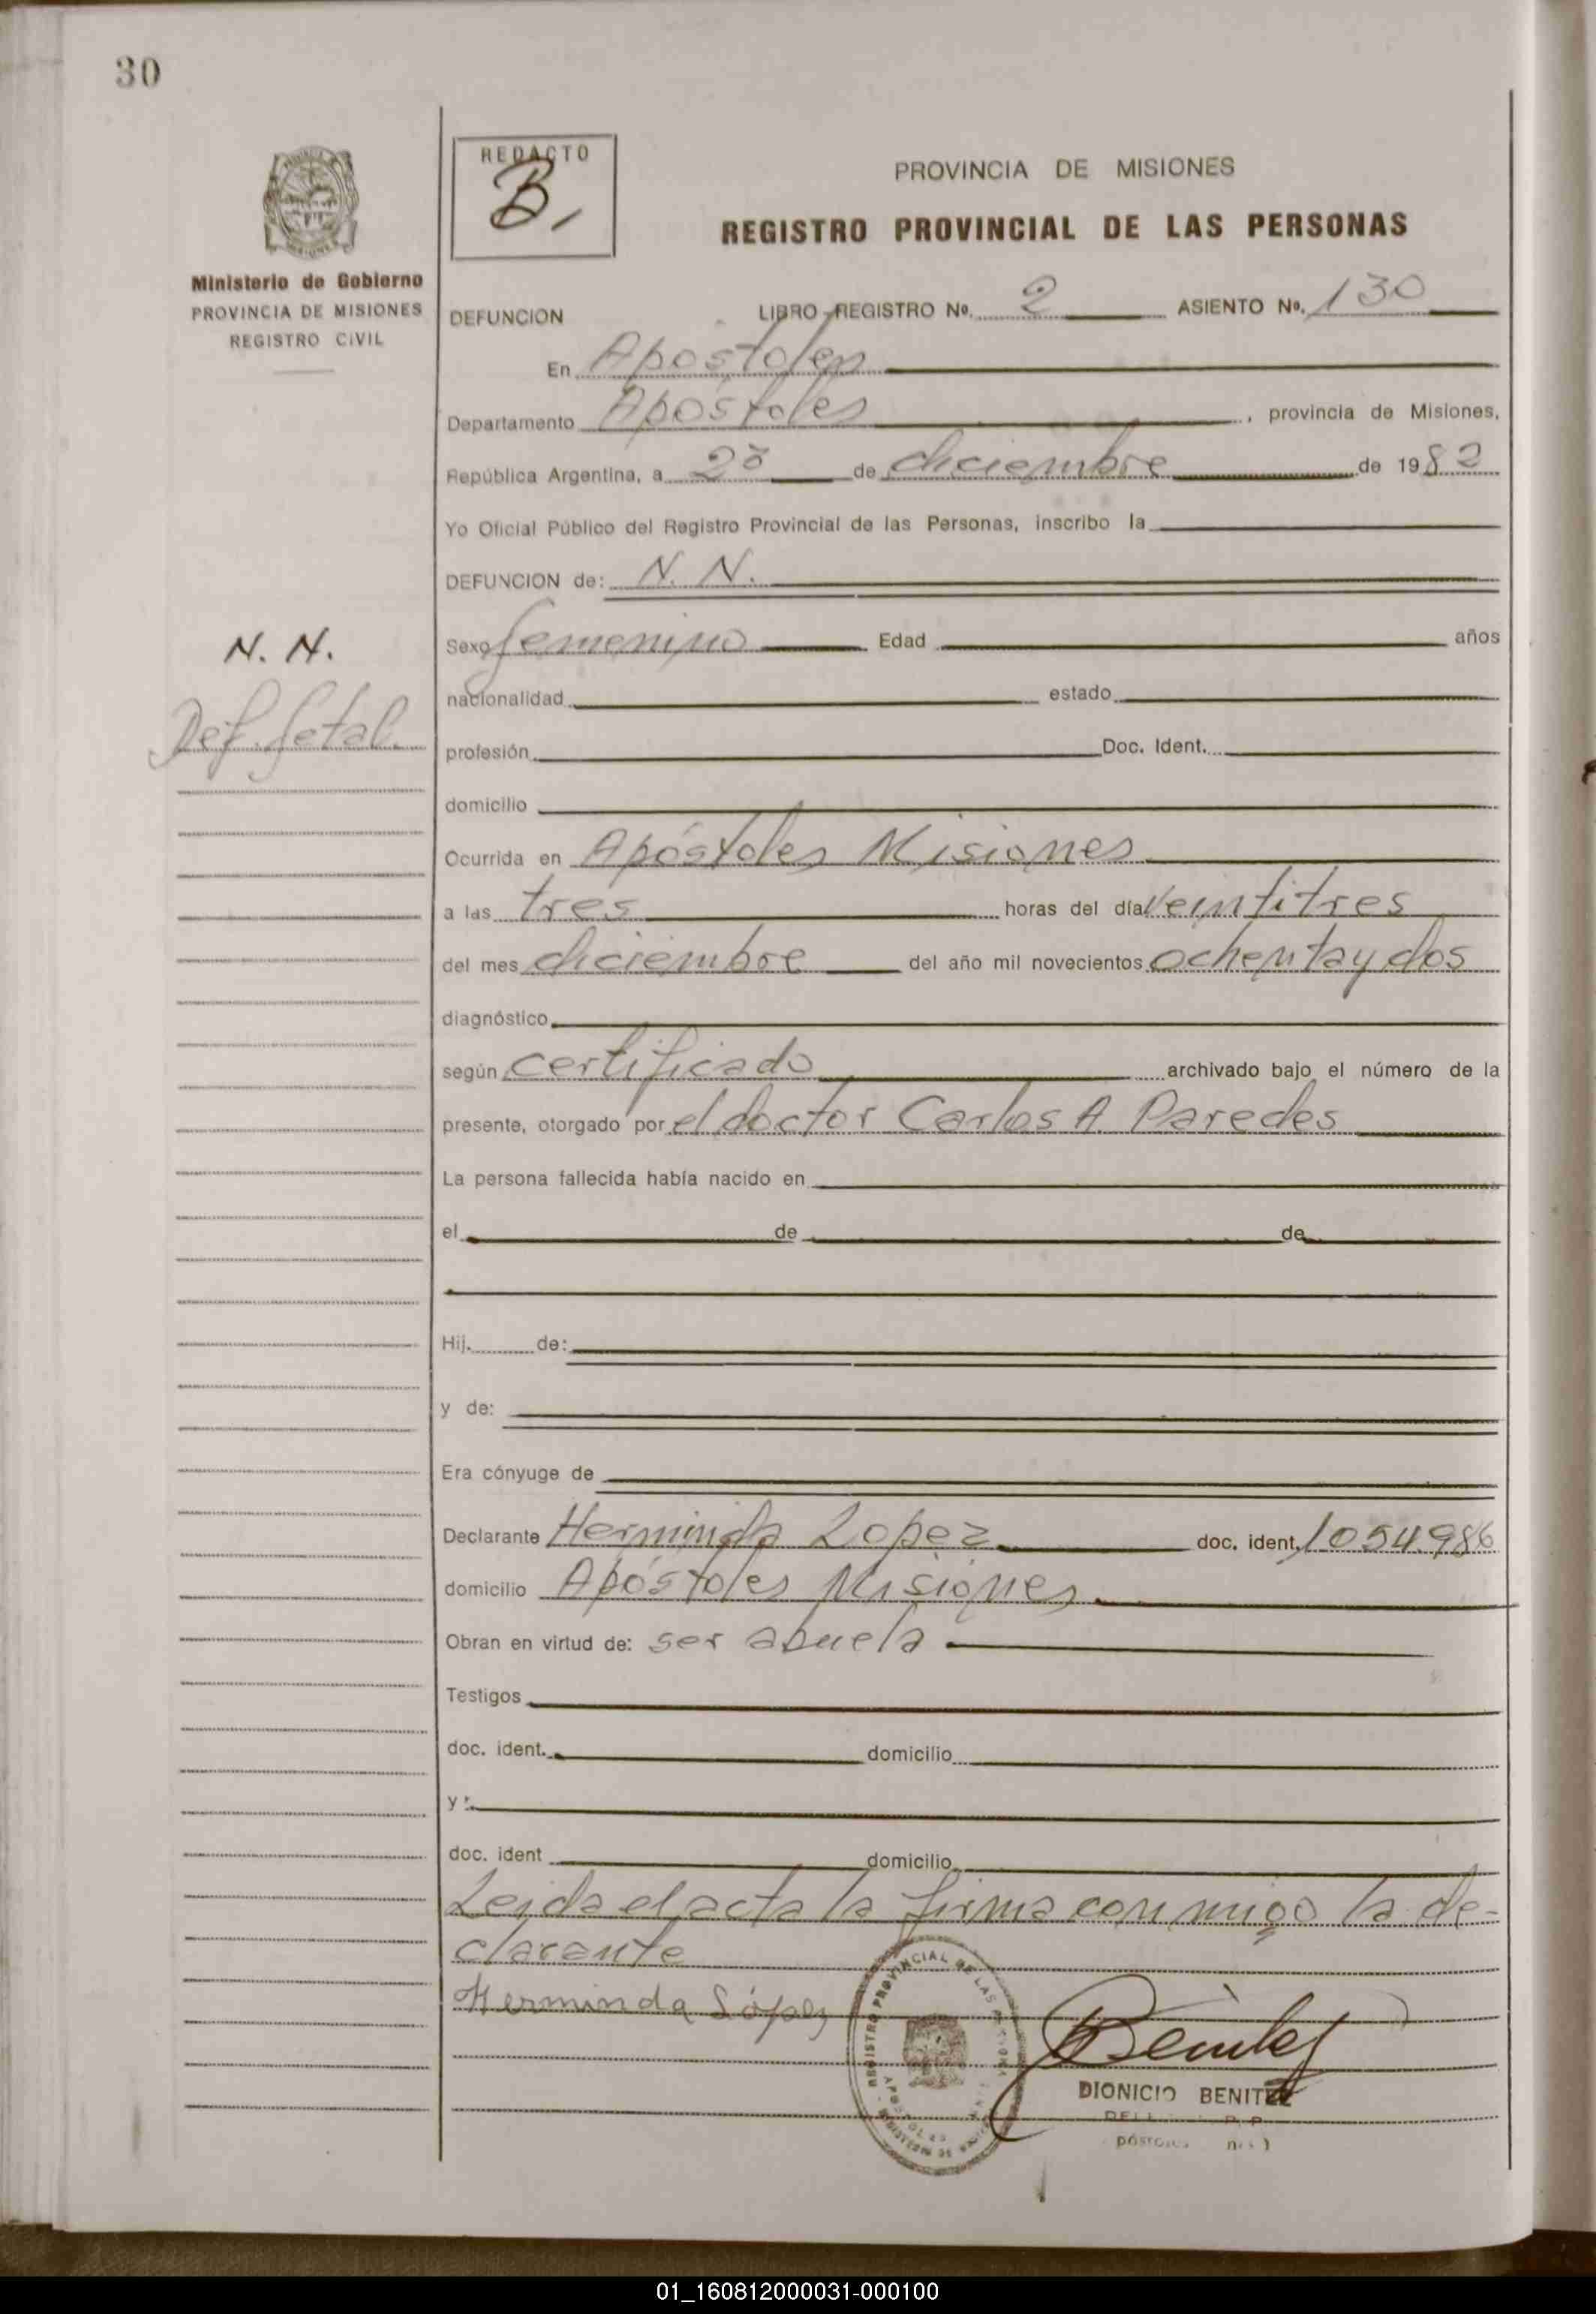 30
REDACTO
B.
PROVINCIA DE MISIONES
REGISTRO PROVINCIAL DE LAS PERSONAS
Ministerio de Gobierno
PROVINCIA DE MISIONES
REGISTRO CIVIL
DEFUNCION LIBRO-REGISTRO No. 2 ASIENTO No. 130
En Apóstoles
Departamento Apóstoles, provincia de Misiones,
República Argentina, a 23 de diciembre de 1982
Yo Oficial Público del Registro Provincial de las Personas, inscribo la
DEFUNCION de: N. N.
N. N.
Def. fetal
Sexo femenino Edad años
nacionalidad estado
profesión Doc. Ident.
domicilio
Ocurrida en Apóstoles Misiones
a las tres horas del día veintitres
del mes diciembre del año mil novecientos ochenta y dos
diagnóstico
según certificado archivado bajo el número de la
presente, otorgado por el doctor Carlos A. Paredes
La persona fallecida había nacido en
el de de
Hij. de:
y de:
Era cónyuge de
Declarante Herminda Lopez doc. ident. 1054986
domicilio Apóstoles Misiones
Obran en virtud de: ser abuela
Testigos
doc. ident. domicilio
y:
doc. ident domicilio
Leida el acta la firma conmigo la de-
clarante
Herminda López
REGISTRO PROVINCIAL DE LAS
Benitez
DIONICIO BENITEZ
01_160812000031-000100